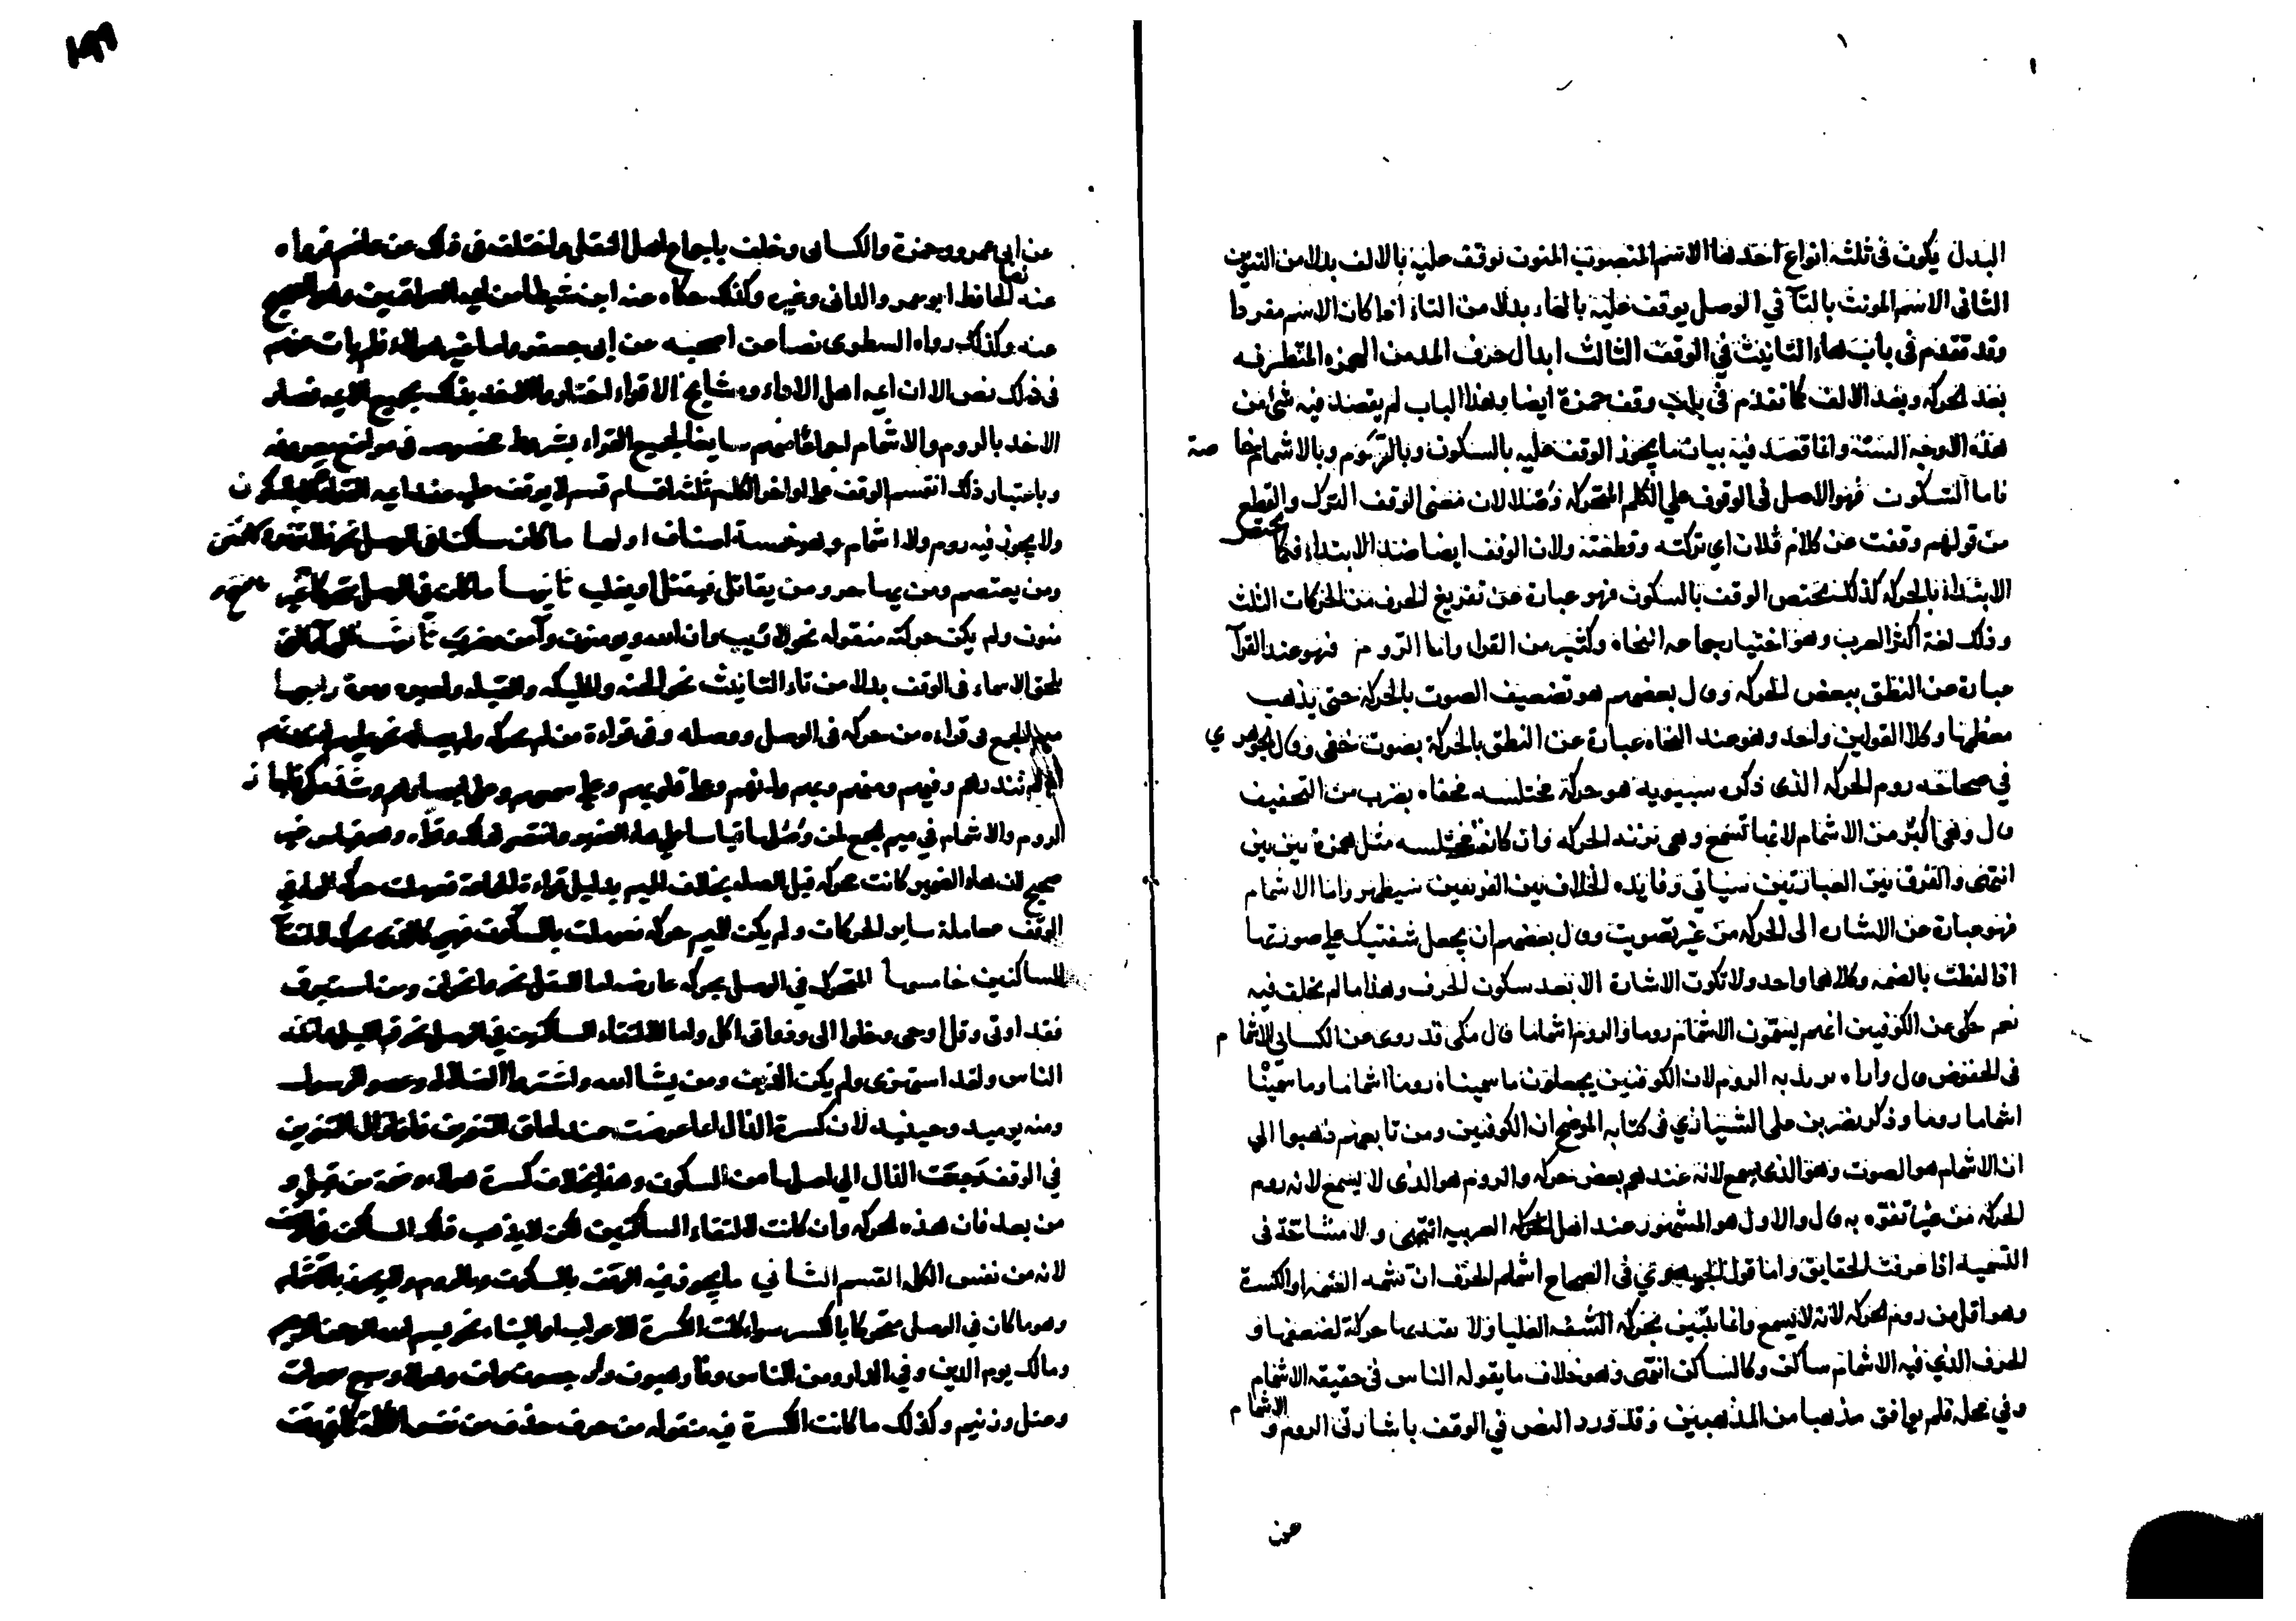 البدل يكون في ثلثه انواع احدها الاسم المنصوب المنون نوقف عليه بالالف بدلا من التنوين
الثاني الاسم المونث بالتآ في الوصل يوقف عليه بالهاء بدلا من التاء اذا كان الاسم مفردا
وقد تقدم في باب هاء التانيث في الوقف الثالث ابدال حرف المد من الهمزه المتطرفه
بعد الحركه وبعد الالف كما تقدم في باب وقف حمزة ايضا وهذا الباب لم يقصد فيه شئ من
هذه الاوجه الستة وانما قصد فيه بيان ما يجوز الوقف عليه بالسكون وبالروم وبالاشمام خاصة
فاما السكون فهو الاصل في الوقوف علي الكلم المتحركه وصلا لان معنى الوقف الترك والقطع
من قولهم وقفت عن كلام فلان اي تركته وقطعته ولان الوقف ايضا ضد الابتداء فكما يختص
الابتداء بالحركه كذلك يختص الوقف بالسكون فهو عبارة عن تفريغ الحرف من الحركات الثلث
وذلك لغة اكثر العرب وهو اختيار جماعه النحاه وكثير من القراء واما الروم فهو عند القرآ
عبارة عن النطق ببعض الحركه وقال بعضهم هو تضعيف الصوت بالحركة حتى يذهب
معظمها وكلا القولين واحد وهو عند النحاه عبارة عن النطق بالحركة بصوت خفي وقال الجوهري
في صحاحه روم الحركه الذي ذكره سيبويه هو حركة مختلسه مخفاه بضرب من التخفيف
قال وهي اكثر من الاشمام لانها تسمع وهي بزنة الحركه وان كانت مختلسه مثل همزة بين بين
انتهى والفرق بين العبارتين سياتي وفايده الخلاف بين الفريقين سيظهر واما الاشمام
فهو عبارة عن الاشاره الى الحركه من غير تصويت وقال بعضهم ان يجعل شفتيك علي صورتها
اذا لفظت بالضمه وكلاهما واحد ولا تكون الاشارة الا بعد سكون الحرف وهذا ما لم يختلف فيه
نعم حكى عن الكوفيين انهم يسمون الاشمام روما والروم اشماما قال مكي قد روى عن الكسائي الاشمام
في المخفوض قال واراه يريد به الروم لان الكوفيين يجعلون ما سميناه روما اشماما وما سميناه
اشماما روما وذكر نصر بن علي الشيرازي في كتابه الموضح ان الكوفيين ومن تابعهم ذهبوا الي
ان الاشمام هو الصوت وهو الذي يسمع لانه عندهم بعض حركه والروم هو الذي لا يسمع لانه روم
الحركه من غير تفوه به قال والاول هو المشهور عند اهل العربيه انتهى ولا مشاحة في
التسميه اذا عرفت الحقايق واما قول الجوهري في الصحاح اشمام الحرف ان تشمه الضمه او الكسرة
وهو اقل من روم الحركه لانه لا يسمع وانما يتبين بحركة الشفه العليا ولا يعتد بها حركة لضعفها و
الحرف الذي فيه الاشمام ساكن وكالساكن انتهى وهو خلاف ما يقوله الناس في حقيقه الاشمام
وفي محله فلم يوافق مذهبا من المذهبين وقد ورد النص في الوقف باشارتى الروم والاشمام
عن
عن ابي عمرو وحمزة والكسائي وخلف باجماع اهل النقل واختلف في ذلك عن عاصم فرواه
عنه نصا الحافظ ابو عمرو الداني وغيره وكذلك حكاه عنه ابن شيطا من ايمه العراقيين وهو الصحيح
عنه وكذلك رواه الشطوى نصا عن اصحابه عن ابي جعفر واما غير هولاء فلم يات عنهم
في ذلك نص الا ان ايمه اهل الاداء ومشايخ الاقراء اختاروا الاخذ بذلك لجميع الايمه فصار
الاخذ بالروم والاشمام اجماعا منهم سايغا لجميع القراء بشروط مخصوصه في مواضع معروفه
وباعتبار ذلك انقسم الوقف على اواخر الكلم ثلثه اقسام قسم لا يوقف عليه عند ايمه القراءة الا بالسكون
ولا يجوز فيه روم ولا اشمام وهو خمسة اصناف اولها ما كان ساكنا في الوصل نحو فلا تنهر ولا تمنن
ومن يعتصم ومن يهاجر ومن يقاتل فيقتل او يغلب ثانيها ما كان في الوصل متحركا بالفتح غير
منون ولم يكن حركته منقوله نحو لا ريب وان الله ويومنون وآمن وضرب ثالثها الهاء التي
تلحق الاسماء في الوقف بدلا من تاء التانيث نحو الجنه والمليكه والقبله رابعها
ميم الجمع في قراءه من حركه في الوصل ووصله وفي قراءة من لم يحركه ولم يصله نحو عليهم انذرتهم
ام لم تنذرهم وفيهم ومنهم وبهم وانهم وعلى قلوبهم وعلى سمعهم وعلى ابصارهم وشذ مكي فاجاز
الروم والاشمام في ميم الجمع لمن وصلها قياسا علي هاء الضمير وانتصر لذلك وقواه وهو قياس غير
صحيح لان هاء الضمير كانت محركه قبل الصله بخلاف الميم بدليل قراءة الجماعة فعوملت حركه الهاء في
الوقف معاملة ساير الحركات ولم يكن للميم حركه فعوملت بالسكون فهي كالذي تحرك لالتقآ
الساكنين خامسها المتحرك في الوصل بحركه عارضه اما للنقل نحو وانحر ان ومن استبرق
فقد اوتي وقل اوحى وخلوا الى وذواتى اكل واما لالتقاء الساكنين في الوصل نحو قم الليل وانذر
الناس ولقد استهزى ولم يكن الذين ومن يشا الله واشتروا الضلاله وعصوا الرسول
ومنه يوميذ وحينيذ لان كسرة الذال انما عرضت عند لحاق التنوين فاذا زال التنوين
في الوقف رجعت الذال الي اصلها من السكون وهذا بخلاف كسرة هولاء وضمة من قبل و
من بعد فان هذه الحركه وان كانت لالتقاء الساكنين لكن لا يذهب ذلك الساكن في الوقف
لانه من نفس الكلمه القسم الثاني ما يجوز فيه الوقف بالسكون وبالروم ولا يجوز بالاشمام
وهو ما كان في الوصل متحركا بالكسر سواء كانت الكسرة للاعراب او البناء نحو بسم الله الرحمن الرحيم
ومالك يوم الدين وفي الدار ومن الناس وفارهبون
وعتل وزنيم وكذلك ما كانت الكسرة فيه منقوله من حرف حذف من نفس الكلمة كما في وقف